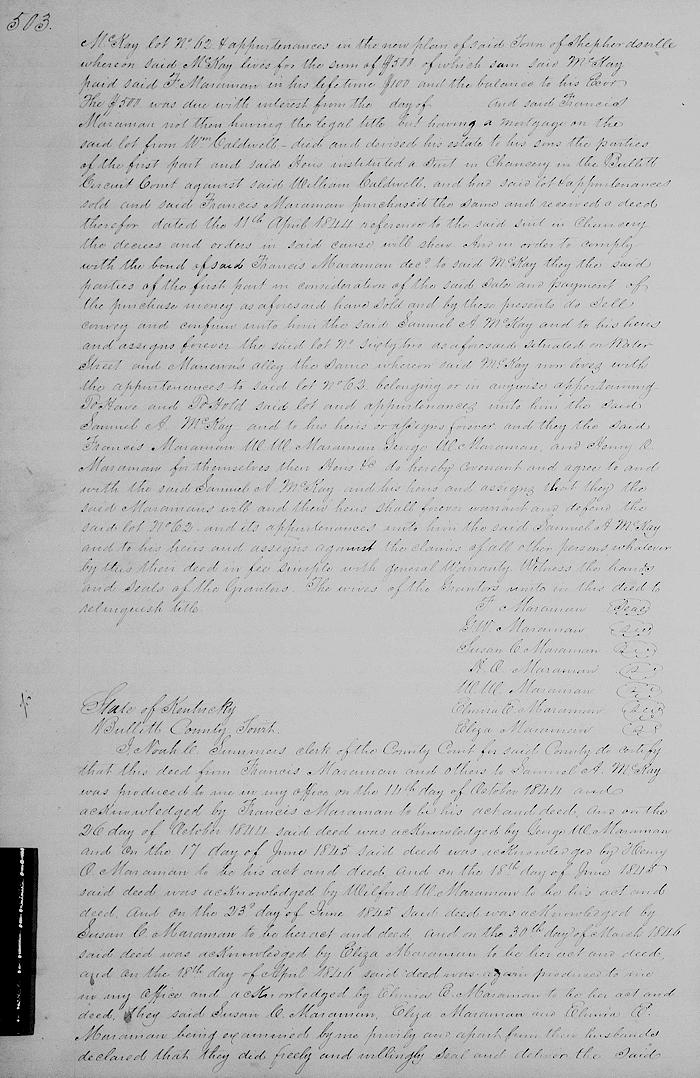 503.
McKay lot No 62 & appurtenances in the new plan of said Town of Shepherdsville
whereon said McKay lives for the sum of $500 of which sum said McKay
paid said F. Maraman in his lifetime $100 and the balance to his Exor
The $500 was due with interest from the day of and said Francis
Maraman not then having the legal title but having a mortgage on the
said lot from Wm Caldwell - died and devised his estate to his sons the parties
of the first part and said Heirs instituted a Suit in Chancery in the Bullitt
Circuit Court against said William Caldwell, and had said lot & appurtenances
sold and said Francis Maraman purchased the same and received a deed
therefor dated the 11th April 1844 reference to the said suit in Chancery
the decrees and orders in said cause will show And in order to comply
with the bond of said Francis Maraman decd to said McKay they the said
parties of the first part in consideration of the said Sale and payment of
the purchase money as aforesaid have sold and by these presents do sell
convey and confirm unto him the said Samuel A McKay and to his heirs
and assigns forever the said lot No sixty two as aforesaid situated on Water
Street and alley the same whereon said McKay now lives with
the appurtenances to said lot No 62 belonging or in anywise appertaining
To Have and To Hold said lot and appurtenances unto him the said
Samuel A. McKay and to his heirs or assigns forever and they the said
Francis Maraman W. W. Maraman George W. Maraman, and Henry O.
Maraman for themselves their Heirs &c do hereby covenant and agree to and
with the said Samuel A McKay and his heirs and assigns that they the
said Maramans will and their heirs shall forever warrant and defend the
said lot No 62. and its appurtenances unto him the said Samuel A McKay
and to his heirs and assigns against the claims of all other persons whatever
by this their deed in fee simple with general Warranty. Witness the hands
and Seals of the Grantors. The wives of the Grantors unite in this deed to
relinquish title.
F Maraman Seal
G. W. Maraman
Susan C Maraman
H. O. Maraman
W. W. Maraman
Elmira E. Maraman
Eliza Maraman
State of Kentucky
Bullitt County Court.
I Noah C. Summers clerk of the County Court for said County do certify
that this deed from Francis Maraman and others to Samuel A. McKay
was produced to me in my office on the 14th day of October 1844 and
acknowledged by Francis Maraman to be his act and deed, And on the
26 day of October 1844 said deed was acknowledged by George W. Maraman
and on the 17 day of June 1845 said deed was acknowledged by Henry
O. Maraman to be his act and deed. And on the 18th day of June 1845
said deed was acknowledged by Wilford W. Maraman to be his act and
deed, And on the 23d day of June 1845 said deed was acknowledged by
Susan C Maraman to be her act and deed, and on the 30th day of March 1846
said deed was acknowledged by Eliza Maraman to be her act and deed,
and on the 18th day of April 1846 said deed was again produced to me
in my office and acknowledged by Elmira E. Maraman to be her act and
deed. They said Susan C. Maraman, Eliza Maraman and Elmira E.
Maraman being examined by me privily and apart from their husbands
declared that they did freely and willingly seal and deliver the said